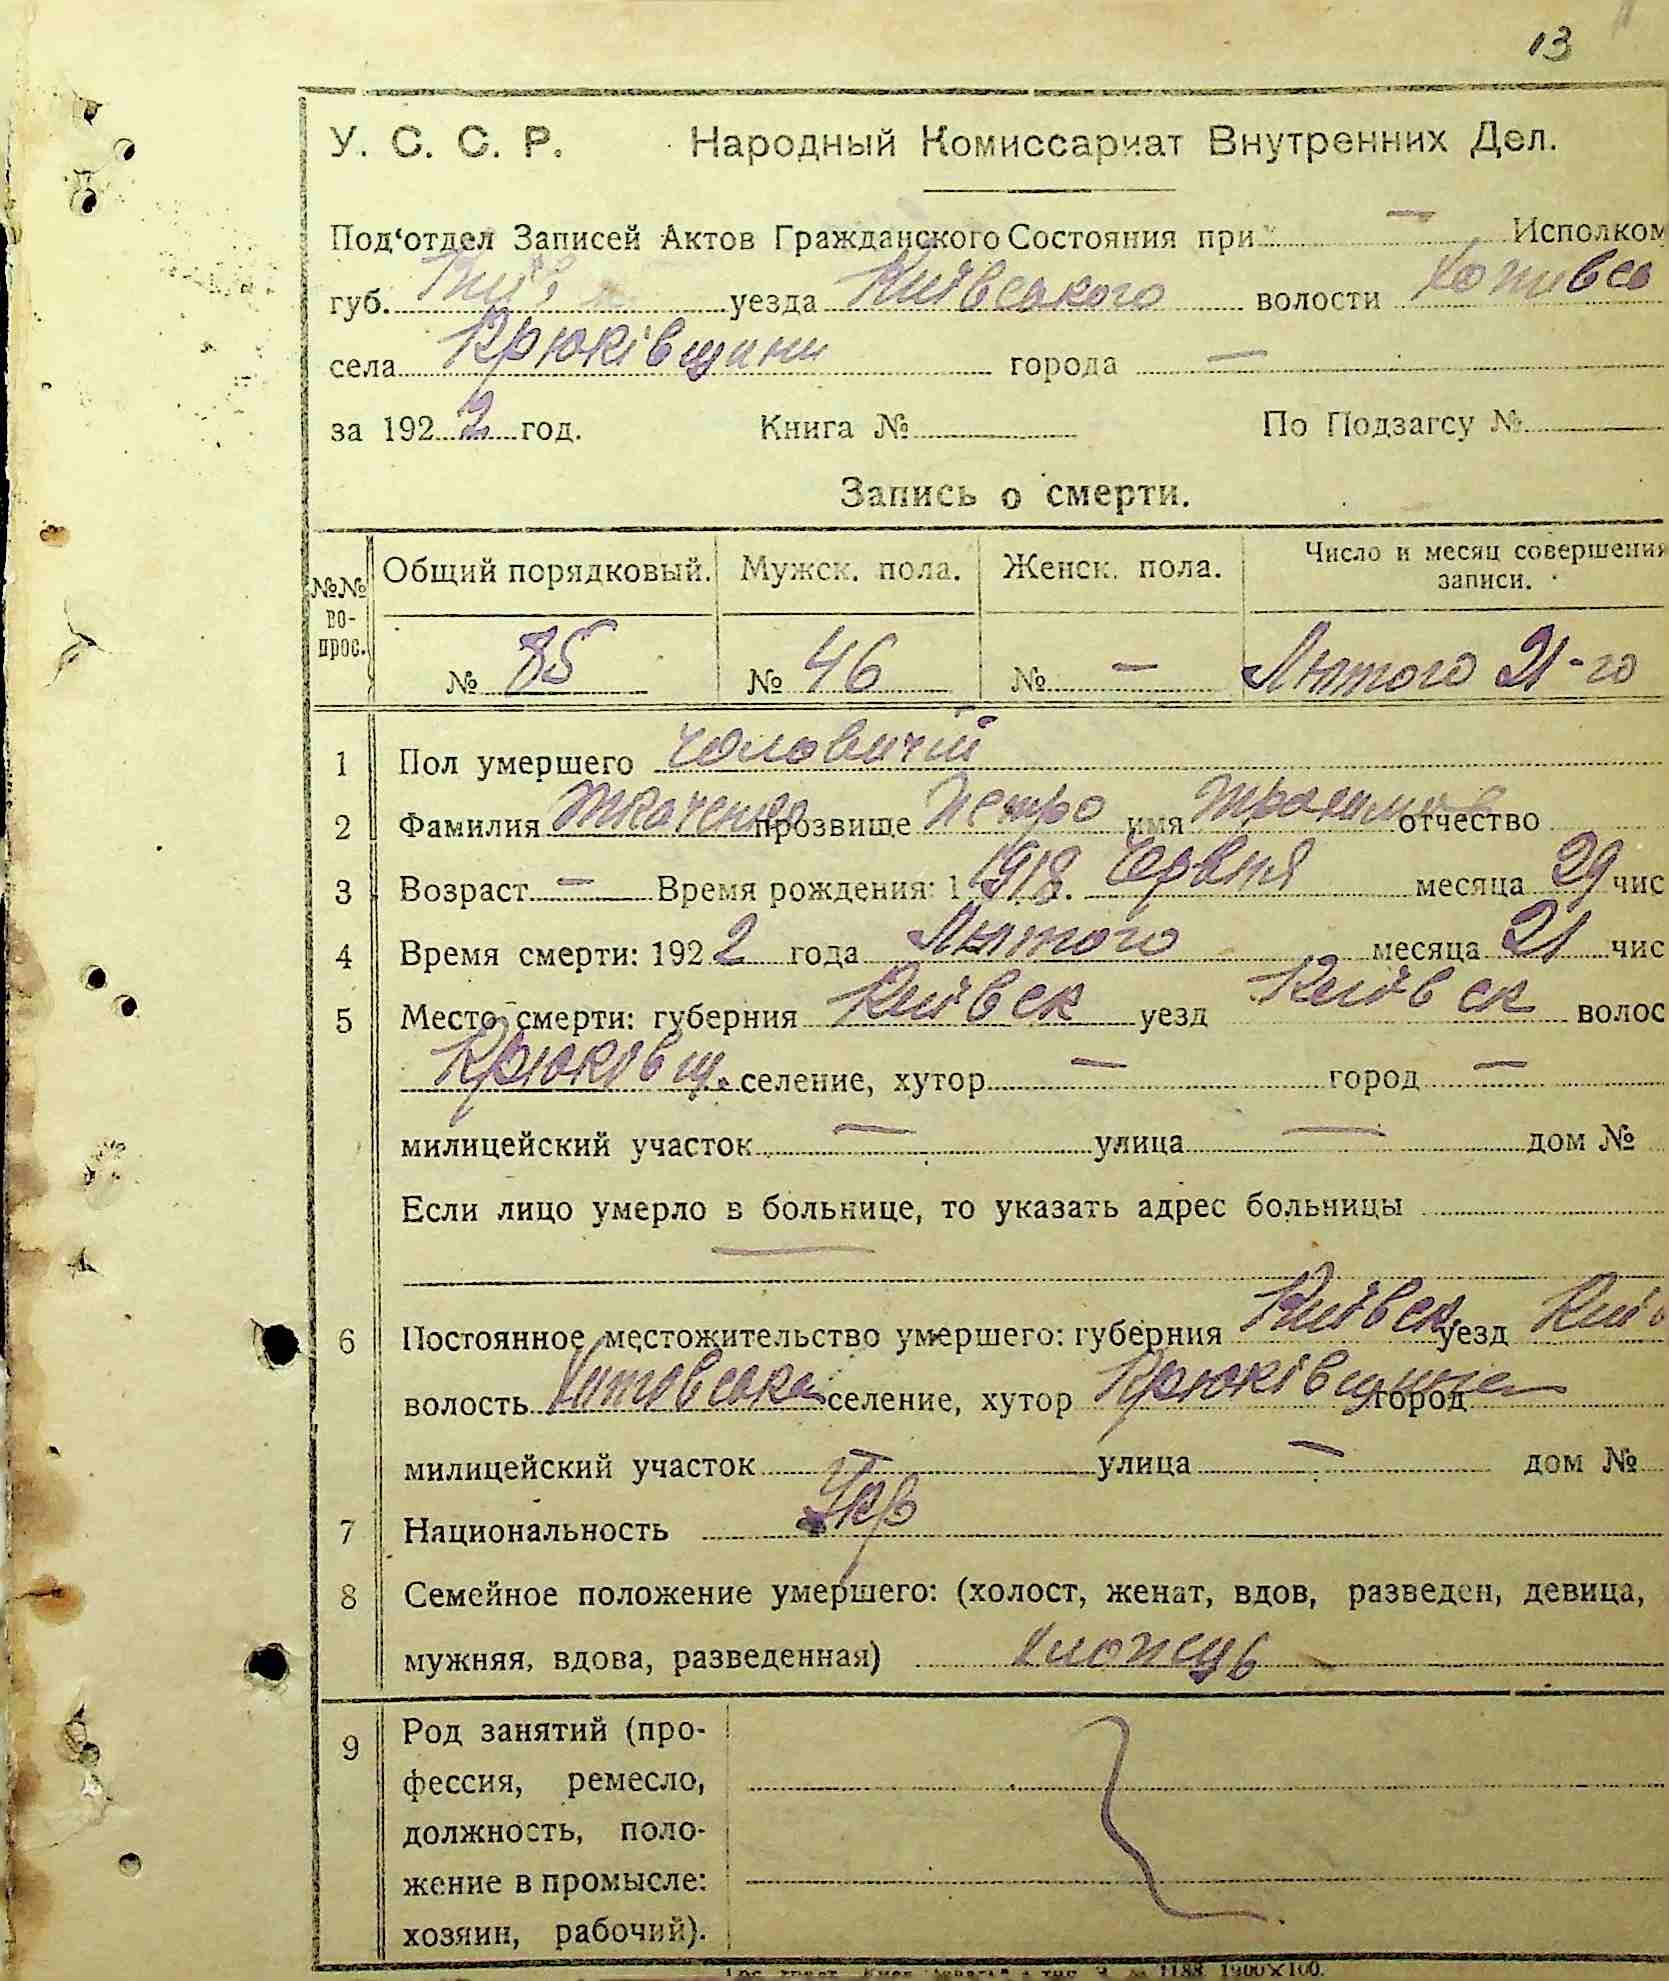 13
У. С. С. Р. Народный Комиссариат Внутренних Дел.
Под‘отдел Записей Актов Гражданского Состояния при — Исполком
губ. Київ уезда Київського волости
села Крюківщини города —
за 1922 год. Книга № По Подзагсу №
Запись о смерти.
№№ во-прос. Общий порядковый. Мужск. пола. Женск. пола. Число и месяц совершения записи.
№ 85 № 46 № — Лютого 21-го
1 Пол умершего чоловичій
2 Фамилия Ткаченко прозвище Петро имя отчество
3 Возраст — Время рождения: 1 1918. Червня месяца 29 чис
4 Время смерти: 1922 года Лютого месяца 21 чис
5 Место смерти: губерния Київск уезд Київск волос
Крюківщ. селение, хутор — город —
милицейский участок — улица — дом №
Если лицо умерло в больнице, то указать адрес больницы
—
6 Постоянное местожительство умершего: губерния Київск уезд Київ
волость селение, хутор Крюківщина город
милицейский участок — улица — дом №
7 Национальность Укр
8 Семейное положение умершего: (холост, женат, вдов, разведен, девица,
мужняя, вдова, разведенная) хлопець
9 Род занятий (про-
фессия, ремесло,
должность, поло-
жение в промысле:
хозяин, рабочий).
1188 1900×100.